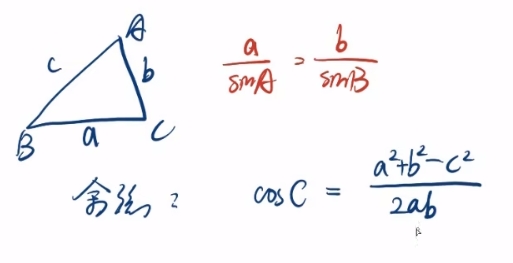 A
c
b
B
a
C
a/sinA = b/sinB
余弦：
cosC = (a²+b²-c²)/2ab